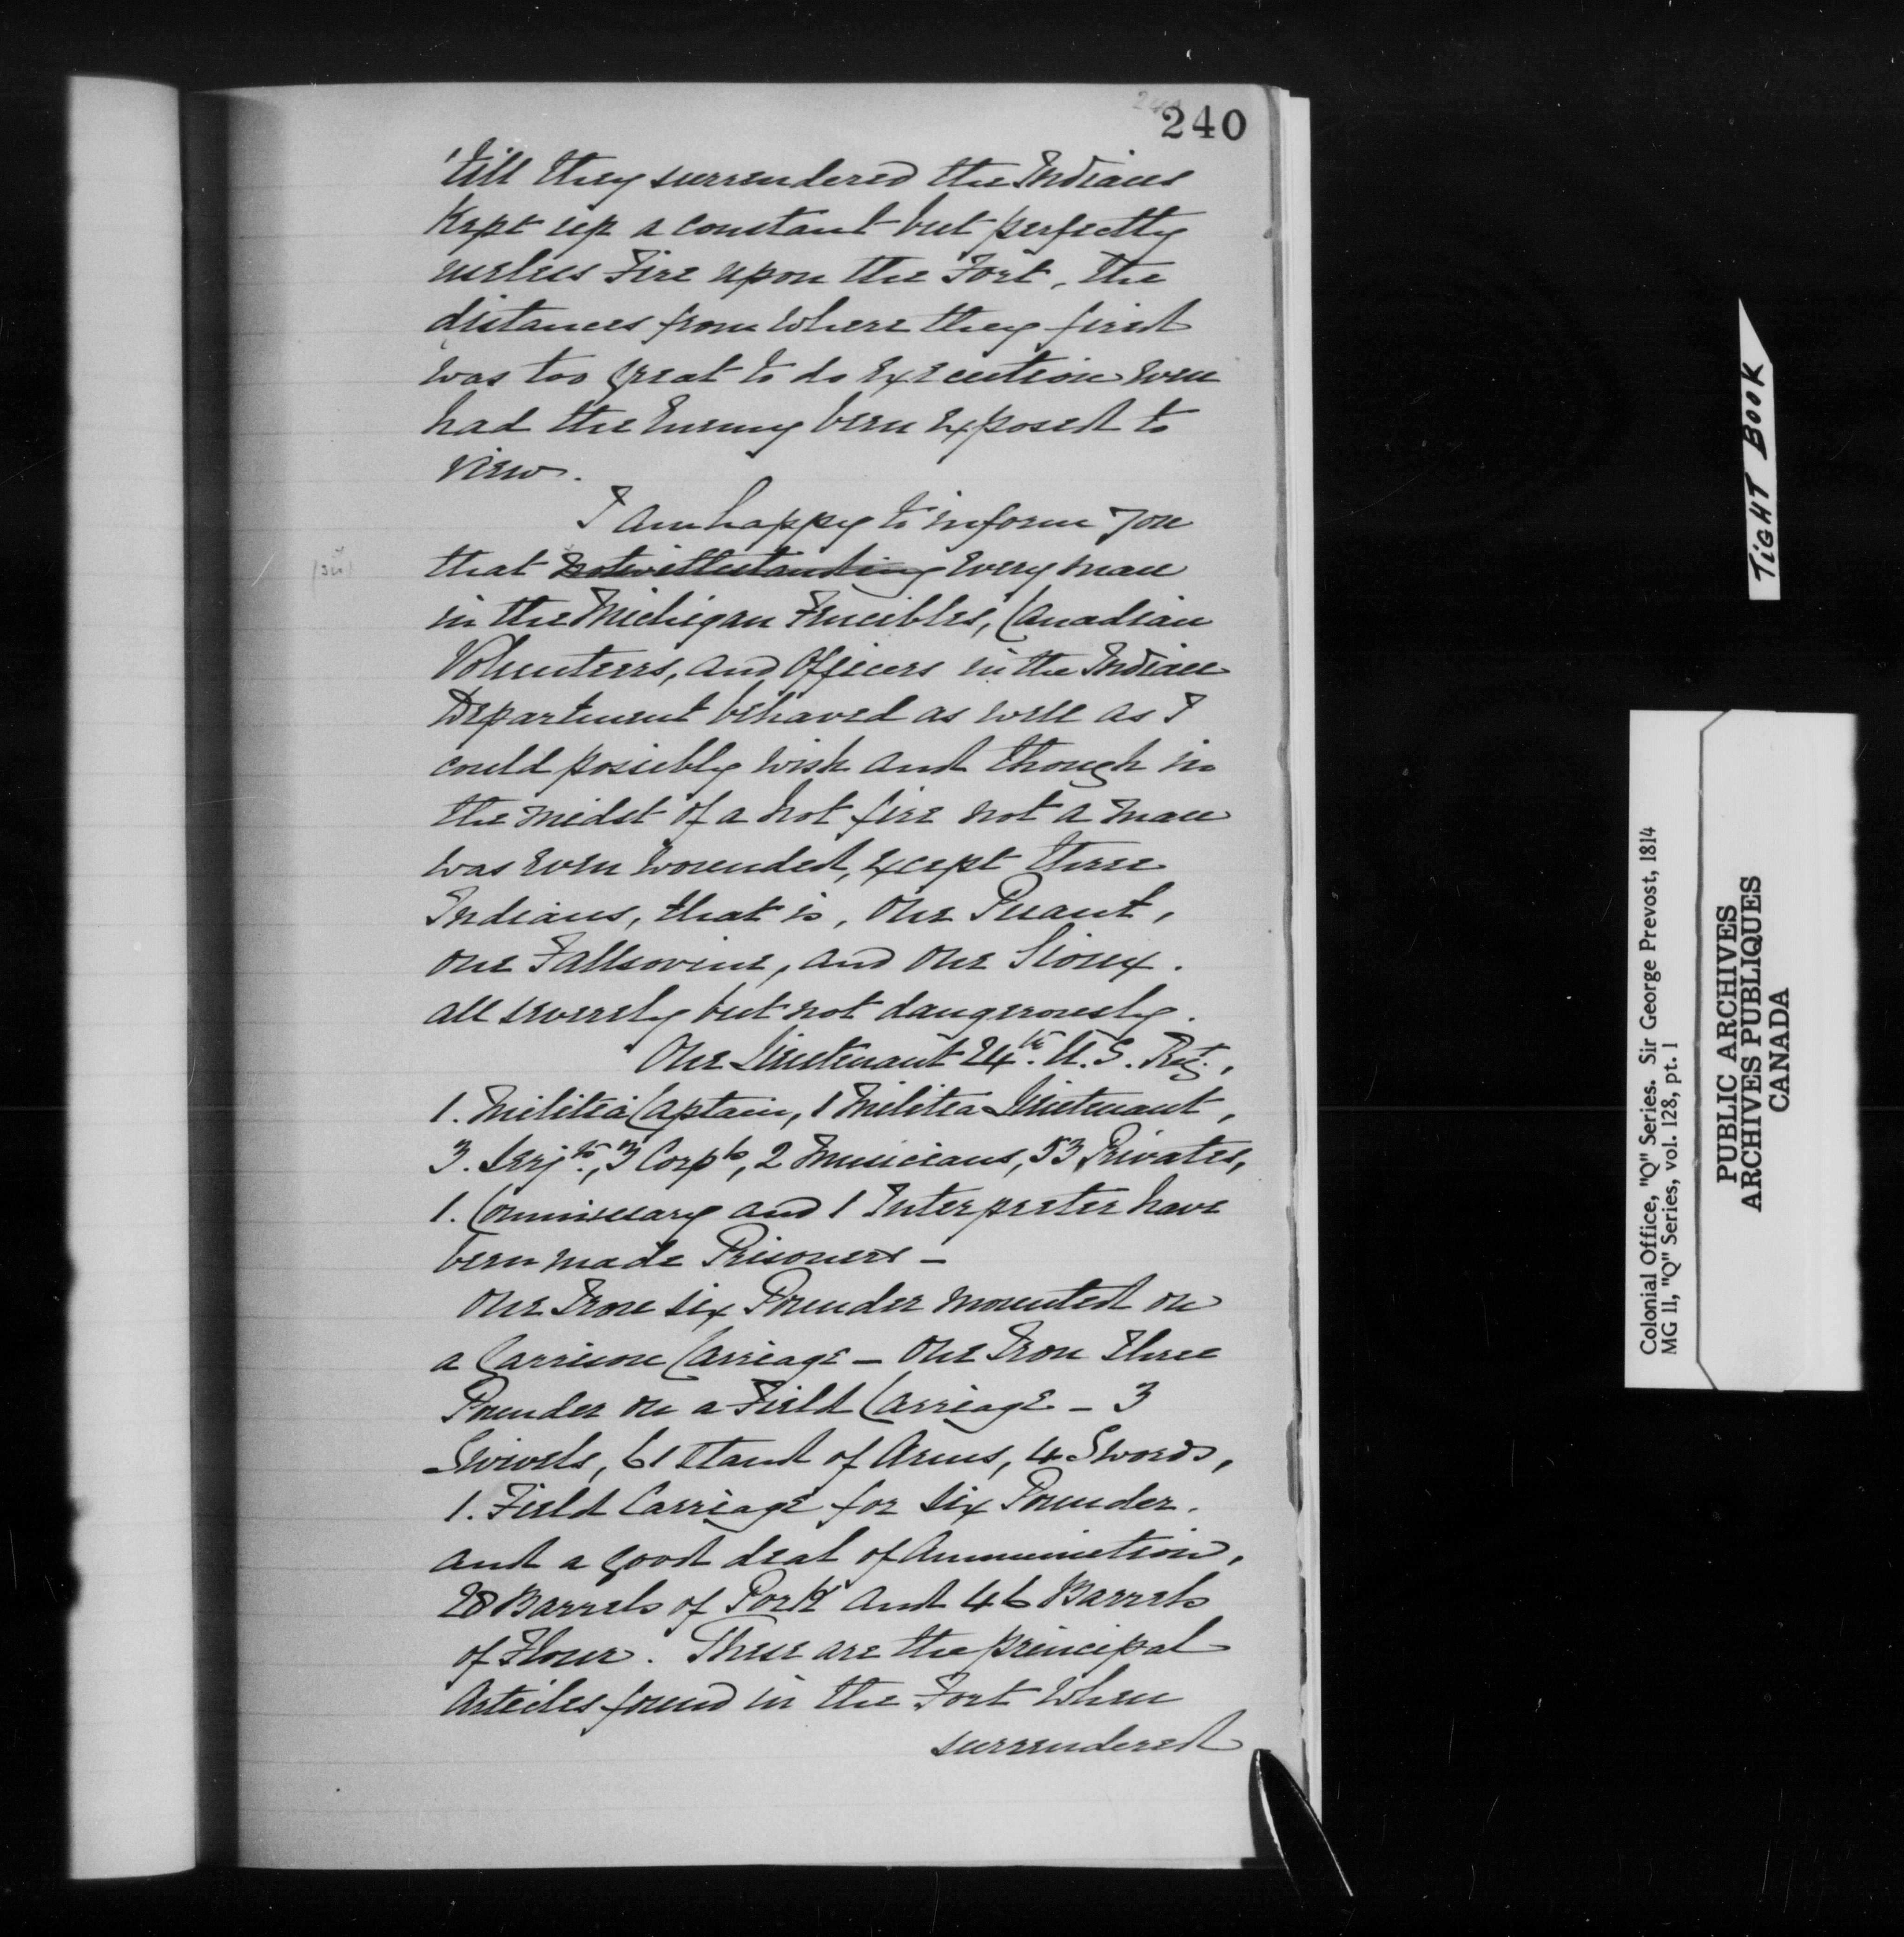 240
'till they surrendered the Indians
Kept up a constant but perfectly
useless Fire upon the Fort, the
distances from where they fired
was too great to do Execution even
had the Enemy been exposed to
view.
I am happy to inform you
that notwithstanding Every man
in the Michigan Fencibles, Canadian
Volunteers, and Officers in the Indian
Department behaved as well as I
could possibly wish and though in
the midst of a hot fire not a man
was even wounded, except three
Indians, that is, One Puant,
one Fallsovine, and One Sioux.
all severely but not dangerously.
One Lieutenant 24th. U.S. Regt.,
1. Militia Captain, 1 Militia Lieutenant,
3. Serjts., 3 Corpls, 2 Musicians, 53 Privates,
1. Commissary and 1 Interpreter have
been made Prisoners –
One Iron six Pounder mounted on
a Garrison Carriage – One Iron three
Pounder on a Field Carriage – 3
Swivels, 61 Stand of Arms, 4 Swords,
1. Field Carriage for Six Pounder.
and a good deal of Ammunition,
28 Barrels of Pork and 46 Barrels
of Flour. These are the principal
Articles found in the Fort when
surrendered
TIGHT BOOK
Colonial Office, "Q" Series. Sir George Prevost, 1814
MG 11, "Q" Series, vol. 128, pt. 1
PUBLIC ARCHIVES
ARCHIVES PUBLIQUES
CANADA